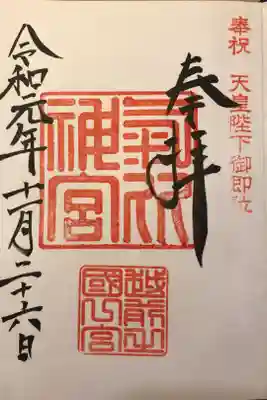 奉祝 天皇陛下御即位
奉拝
氣比
神宮
越前之
國一宮
令和元年十一月二十六日